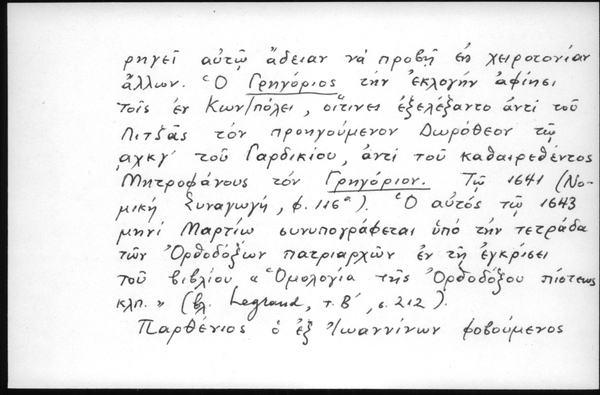 ρηγεῖ αὐτῷ ἄδειαν νὰ προβῇ ἐις χειροτονίαν
ἄλλων. Ὁ Γρηγόριος τὴν ἐκλογὴν ἀφίησι
τοῖς ἐν Κων/πόλει, οἵτινες ἐξελέξαντο ἀντὶ τοῦ
Λιτζᾶς τὸν προηγούμενον Δωρόθεον τῷ
͵αχκγ´ τοῦ Γαρδικίου, ἀντὶ τοῦ καθαιρεθέντος
Μητροφάνους τὸν Γρηγόριον. Τῷ 1641 (Νο-
μικὴ Συναγωγή, φ. 116α). Ὁ αὐτὸς τῷ 1643
μηνὶ Μαρτίῳ συνυπογράφεται ὑπὸ τὴν τετράδα
τῶν Ὀρθοδόξων πατριαρχῶν ἐν τῇ ἐγκρίσει
τοῦ βιβλίου « Ὁμολογία τῆς Ὀρθοδόξου πίστεως
κλπ. » (βλ. Legrand, τ. Β´, σ. 212).
Παρθένιος ὁ ἐξ Ἰωαννίνων φοβούμενος